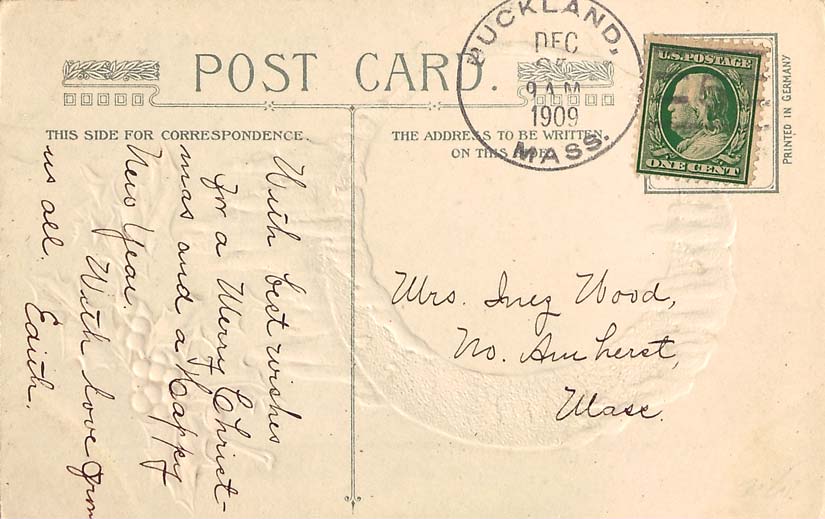 POST CARD.
THIS SIDE FOR CORRESPONDENCE.
THE ADDRESS TO BE WRITTEN
ON THIS SIDE.
BUCKLAND,
DEC
9 AM
1909
MASS.
U.S. POSTAGE
ONE CENT
PRINTED IN GERMANY
With best wishes
for a Merry Christ-
mas and a Happy
New Year.
With love from
us all.
Edith.
Mrs. Inez Wood,
No. Amherst,
Mass.